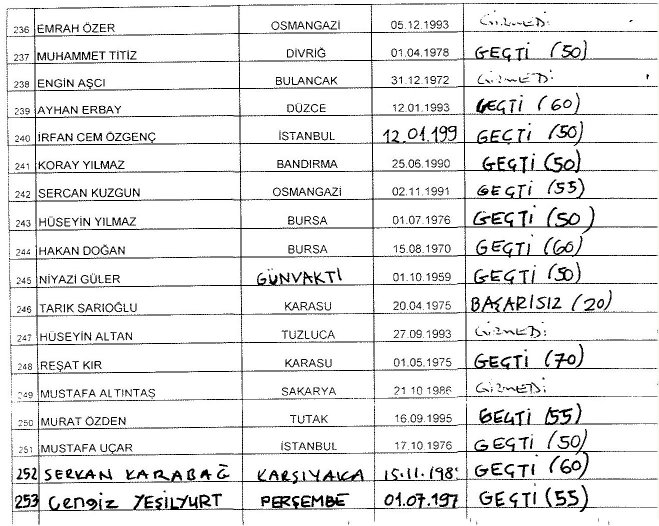 236 EMRAH ÖZER OSMANGAZİ 05.12.1993 GİRMEDİ
237 MUHAMMET TİTİZ DİVRİĞ 01.04.1978 GEÇTİ (50)
238 ENGİN AŞCI BULANCAK 31.12.1972 GİRMEDİ
239 AYHAN ERBAY DÜZCE 12.01.1993 GEÇTİ (60)
240 İRFAN CEM ÖZGENÇ İSTANBUL 12.01.199 GEÇTİ (50)
241 KORAY YILMAZ BANDIRMA 25.06.1990 GEÇTİ (50)
242 SERCAN KUZGUN OSMANGAZİ 02.11.1991 GEÇTİ (55)
243 HÜSEYİN YILMAZ BURSA 01.07.1976 GEÇTİ (50)
244 HAKAN DOĞAN BURSA 15.08.1970 GEÇTİ (60)
245 NİYAZİ GÜLER GÜNVAKTİ 01.10.1959 GEÇTİ (50)
246 TARIK SARIOĞLU KARASU 20.04.1975 BAŞARISIZ (20)
247 HÜSEYİN ALTAN TUZLUCA 27.09.1993 GİRMEDİ
248 REŞAT KIR KARASU 01.05.1975 GEÇTİ (70)
249 MUSTAFA ALTINTAŞ SAKARYA 21 10 1986 GİRMEDİ
250 MURAT ÖZDEN TUTAK 16.09.1995 GEÇTİ (55)
251 MUSTAFA UÇAR İSTANBUL 17.10.1976 GEÇTİ (50)
252 SERKAN KARABAĞ KARŞIYAKA 15.11.198 GEÇTİ (60)
253 Cengiz YEŞİLYURT PERŞEMBE 01.07.197 GEÇTİ (55)